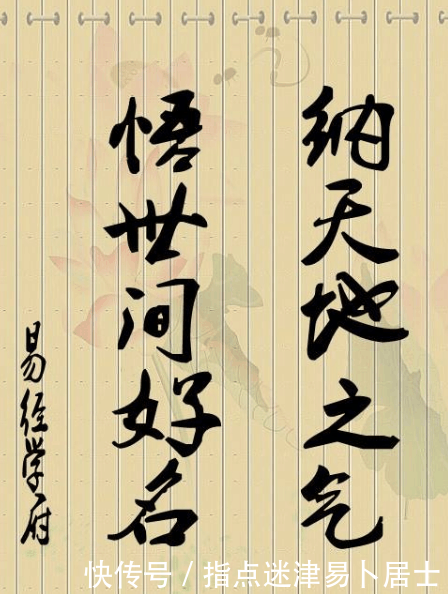 纳天地之气
悟世间好名
易经学府
快传号 / 指点迷津易卜居士